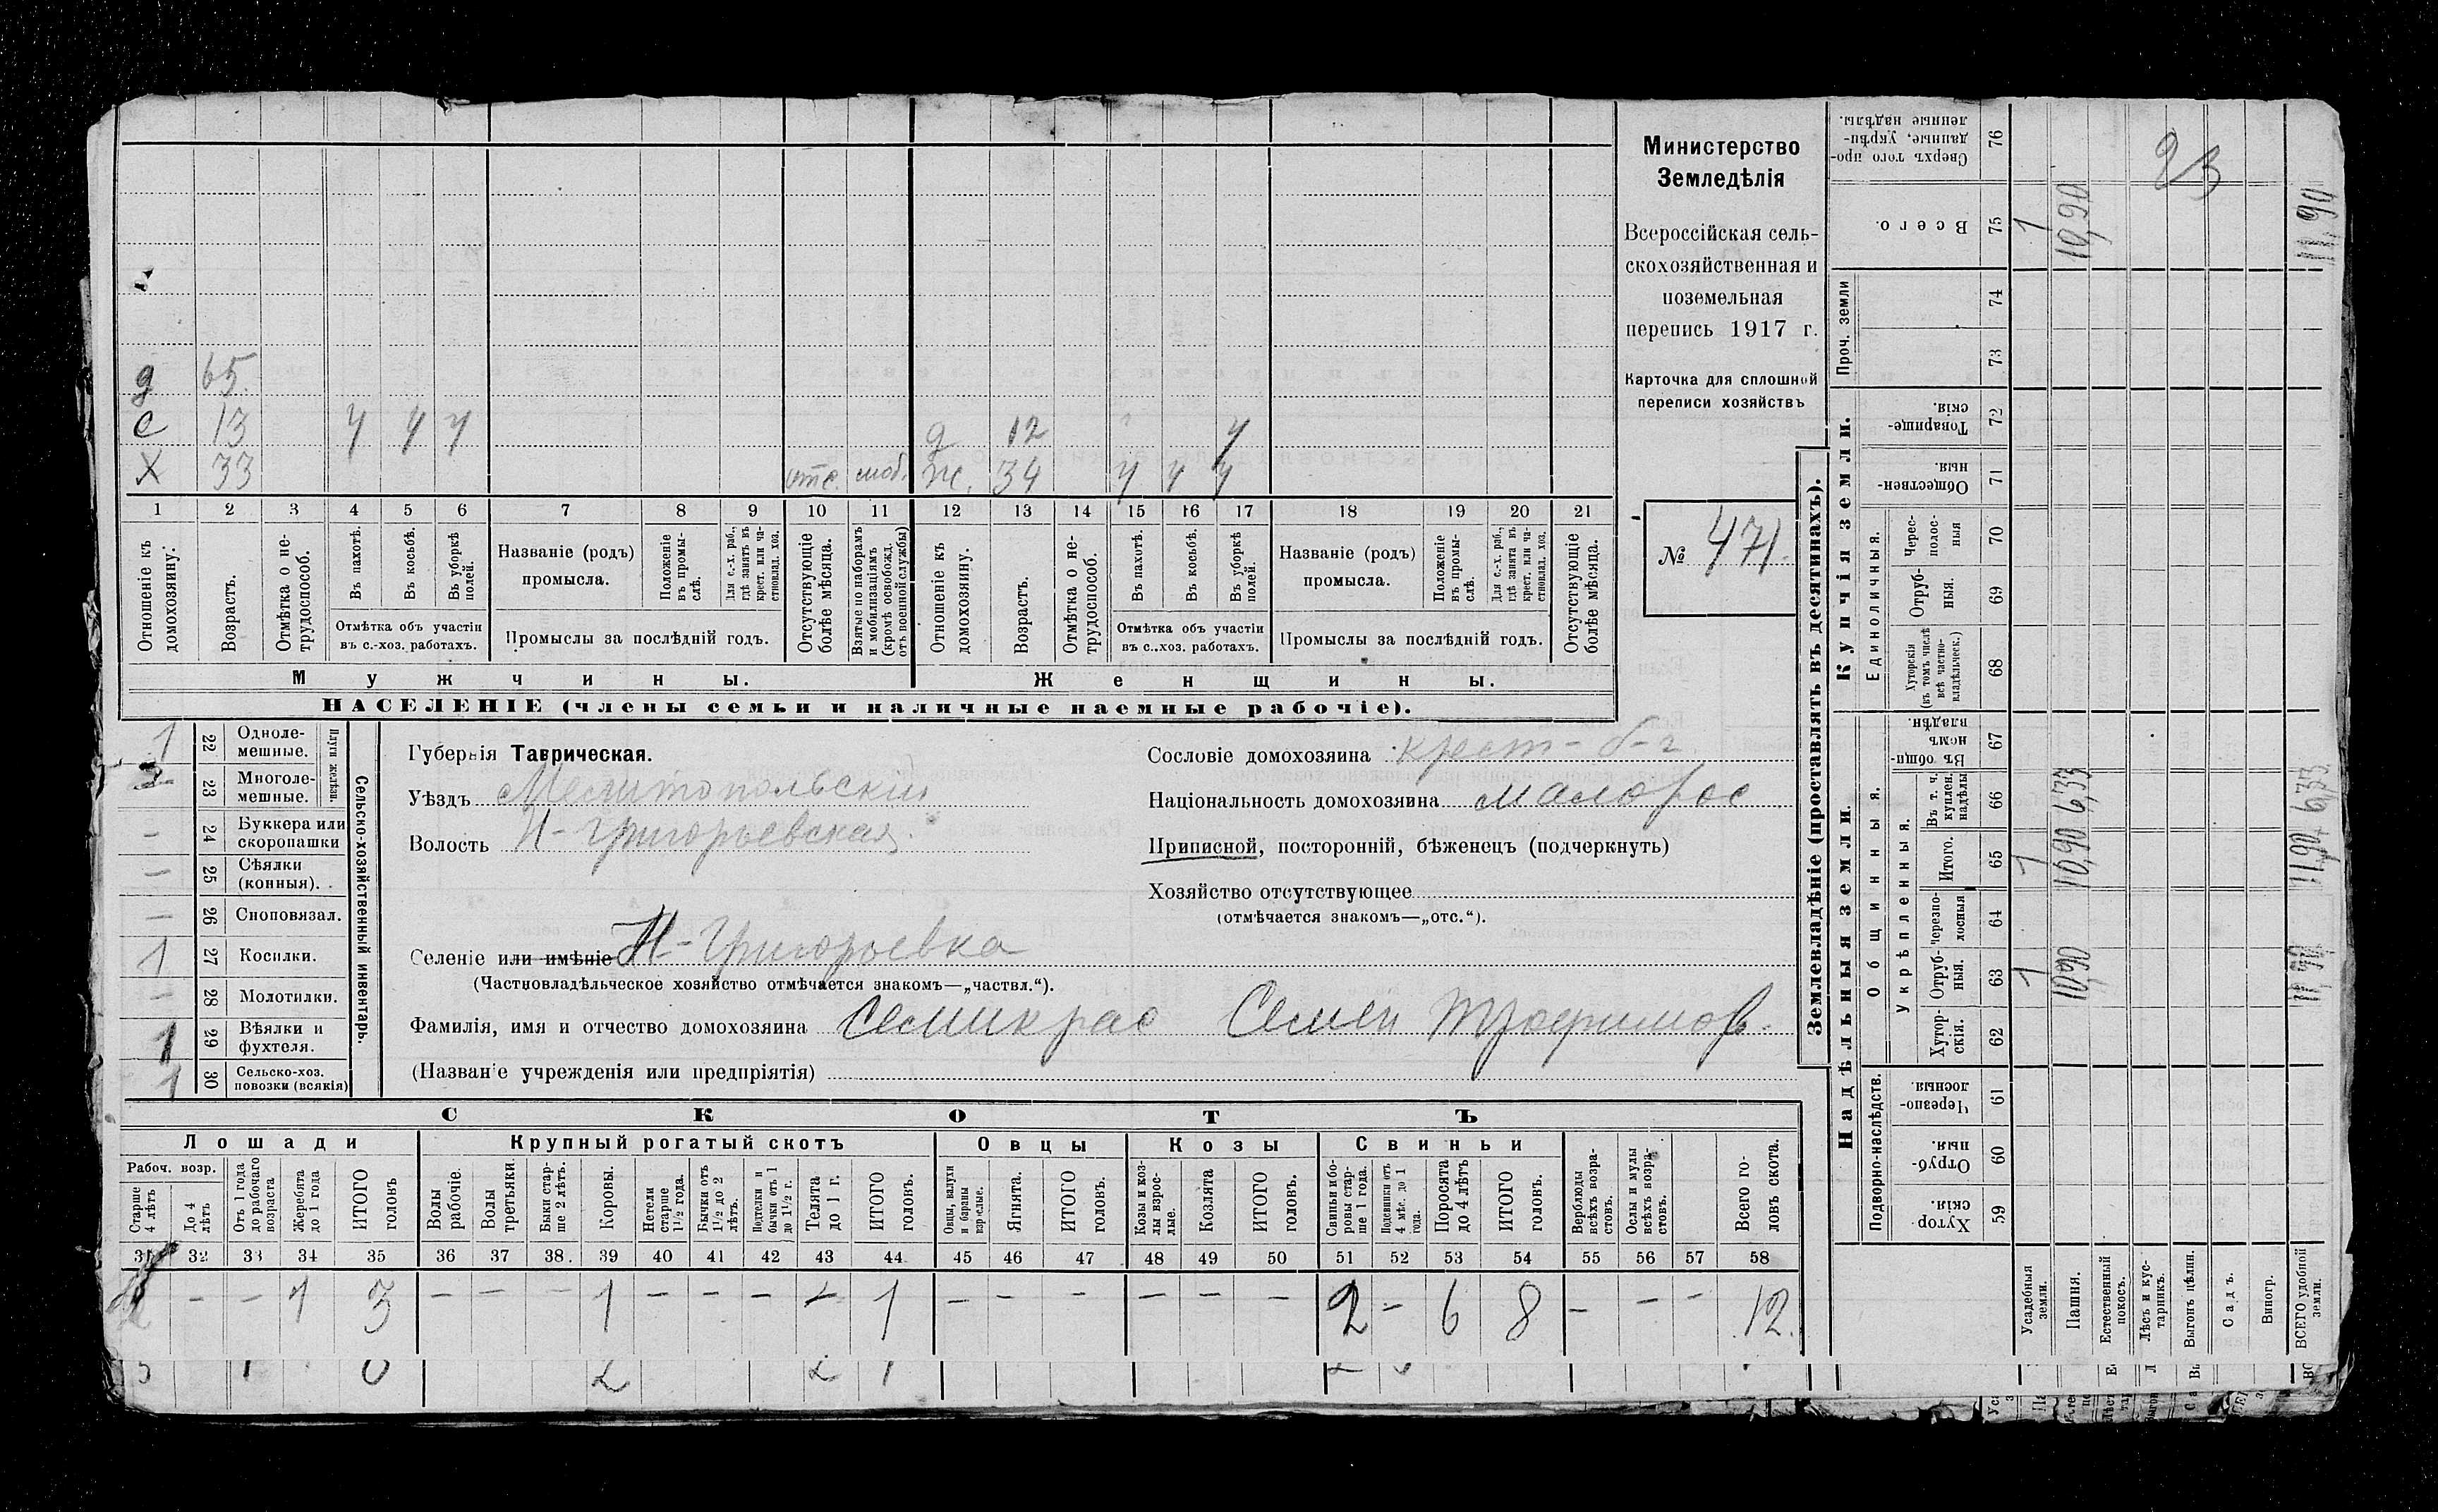 Министерство
Земледѣлія
Всероссійская сель-
скохозяйственная и
поземельная
перепись 1917 г.
Карточка для сплошной
переписи хозяйствъ
№ 471.
д 65.
с 13 ч ч ч д 12 ч
Х 33 отс. моб. ж. 34 ч ч ч
1 2 3 4 5 6 7 8 9 10 11 12 13 14 15 16 17 18 19 20 21
Отношеніе къ домохозяину.
Возрастъ.
Отмѣтка о не-трудоспособ.
Въ пахотѣ.
Въ косьбѣ.
Въ уборкѣ полей.
Отмѣтка объ участіи
въ с.-хоз. работахъ.
Названіе (родъ)
промысла.
Положеніе въ промы-слѣ.
Для с.-х. раб., гдѣ занятъ въ крест. или ча-стновлад. хоз.
Промыслы за послѣдній годъ.
Отсутствующіе болѣе мѣсяца.
Взятые по наборамъ и мобилизаціямъ (кромѣ освобожд. отъ военной службы)
Отношеніе къ домохозяину.
Возрастъ.
Отмѣтка о не-трудоспособ.
Въ пахотѣ.
Въ косьбѣ.
Въ уборкѣ полей.
Отмѣтка объ участіи
въ с..хоз. работахъ.
Названіе (родъ)
промысла.
Положеніе въ промы-слѣ.
Для с.-х. раб., гдѣ занята въ крест. или ча-стновлад. хоз.
Промыслы за послѣдній годъ.
Отсутствующіе болѣе мѣсяца.
Мужчины.
Женщины.
НАСЕЛЕНІЕ (члены семьи и наличные наемные рабочіе).
1 22 Одноле-мешные.
23 Многоле-мешные.
Плуги желѣзн.
– 24 Буккера или скоропашки
– 25 Сѣялки (конныя).
– 26 Сноповязал.
1 27 Косилки.
– 28 Молотилки.
1 29 Вѣялки и фухтеля.
1 30 Сельско-хоз. повозки (всякія)
Сельско-хозяйственный инвентарь.
Губернія Таврическая.
Уѣздъ Мелитопольский
Волость Н-Григорьевская
Селеніе или имѣніе Н-Григорьевка
(Частновладѣльческое хозяйство отмѣчается знакомъ—„частвл.“).
Фамилія, имя и отчество домохозяина Семикрас Семен Трофимов.
(Названіе учрежденія или предпріятія)
Сословіе домохозяина крест-
Національность домохозяина малорос
Приписной, посторонній, бѣженецъ (подчеркнуть)
Хозяйство отсутствующее
(отмѣчается знакомъ—„отс.“).
СКОТЪ
Лошади
Крупный рогатый скотъ
Овцы
Козы
Свиньи
Рабоч. возр.
Старше 4 лѣтъ
До 4 лѣтъ
Отъ 1 года до рабочаго возраста
Жеребята до 1 года
ИТОГО головъ
Волы рабочіе.
Волы третьяки.
Быки стар-ше 2 лѣтъ.
Коровы.
Нетели старше 1½ года.
Бычки отъ 1½ до 2 лѣтъ.
Подтелки и бычки отъ 1 до 1½ г.
Телята до 1 г.
ИТОГО головъ.
Овцы, валухи и бараны взрослые.
Ягнята.
ИТОГО головъ.
Козы и коз-лы взрос-лые.
Козлята
ИТОГО головъ.
Свиньи и бо-ровы стар-ше 1 года.
Подсвинки отъ 4 мѣс. до 1 года.
Поросята до 4 лѣтъ
ИТОГО головъ.
Верблюды всѣхъ возра-стовъ.
Ослы и мулы всѣхъ возра-стовъ.
Всего го-ловъ скота.
31 32 33 34 35 36 37 38. 39 40 41 42 43 44. 45 46 47 48 49 50 51 52 53 54 55 56 57 58
2 – – 1 3 – – – 1 – – – – 1 – – – – – – 2 – 6 8 – – – 12.
Землевладѣніе (проставлять въ десятинахъ).
Купчія земли.
Надѣльныя земли.
Сверхъ того про-данные, укрѣп-ленные надѣлы. 76
Всего. 75
Проч. земли 74 73
Товарище-скія. 72
Обществен-ныя. 71
Единоличныя.
Черес-полос-ныя 70
Отруб-ныя. 69
Хуторскія (въ томъ числѣ всѣ частно-владѣльческ.) 68
Общинныя.
Въ общин-номъ владѣн. 67
Укрѣпленныя.
Въ т. ч. куплен. надѣлы 66
Итого. 65
черезпо-лосныя 64
Отруб-ныя. 63
Хутор-скія. 62
Подворно-наслѣдств.
Черезпо-лосныя. 61
Отруб-ныя. 60
Хутор-скія. 59
Усадебныя земли. 1 1 1
Пашня. 10,90 10,90 6,33 10,90
Естественный покосъ.
Лѣсъ и кус-тарникъ.
Выгонъ цѣлин.
Садъ.
Виногр.
ВСЕГО удобной земли. 11,90 11,90 6,33 11,90
23